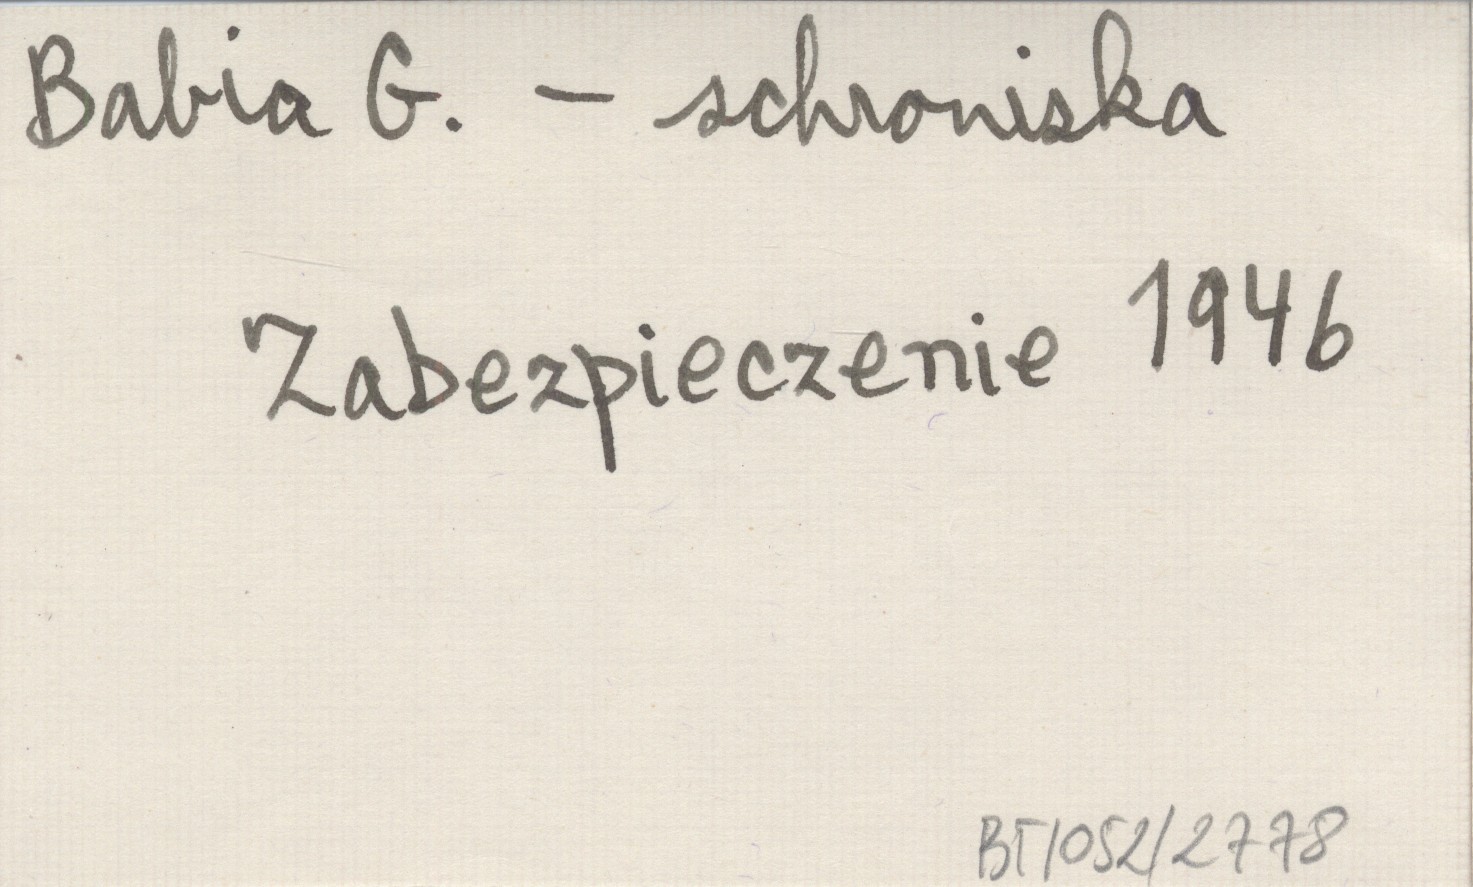 Babia G. – schroniska
Zabezpieczenie 1946
BT/052/2778